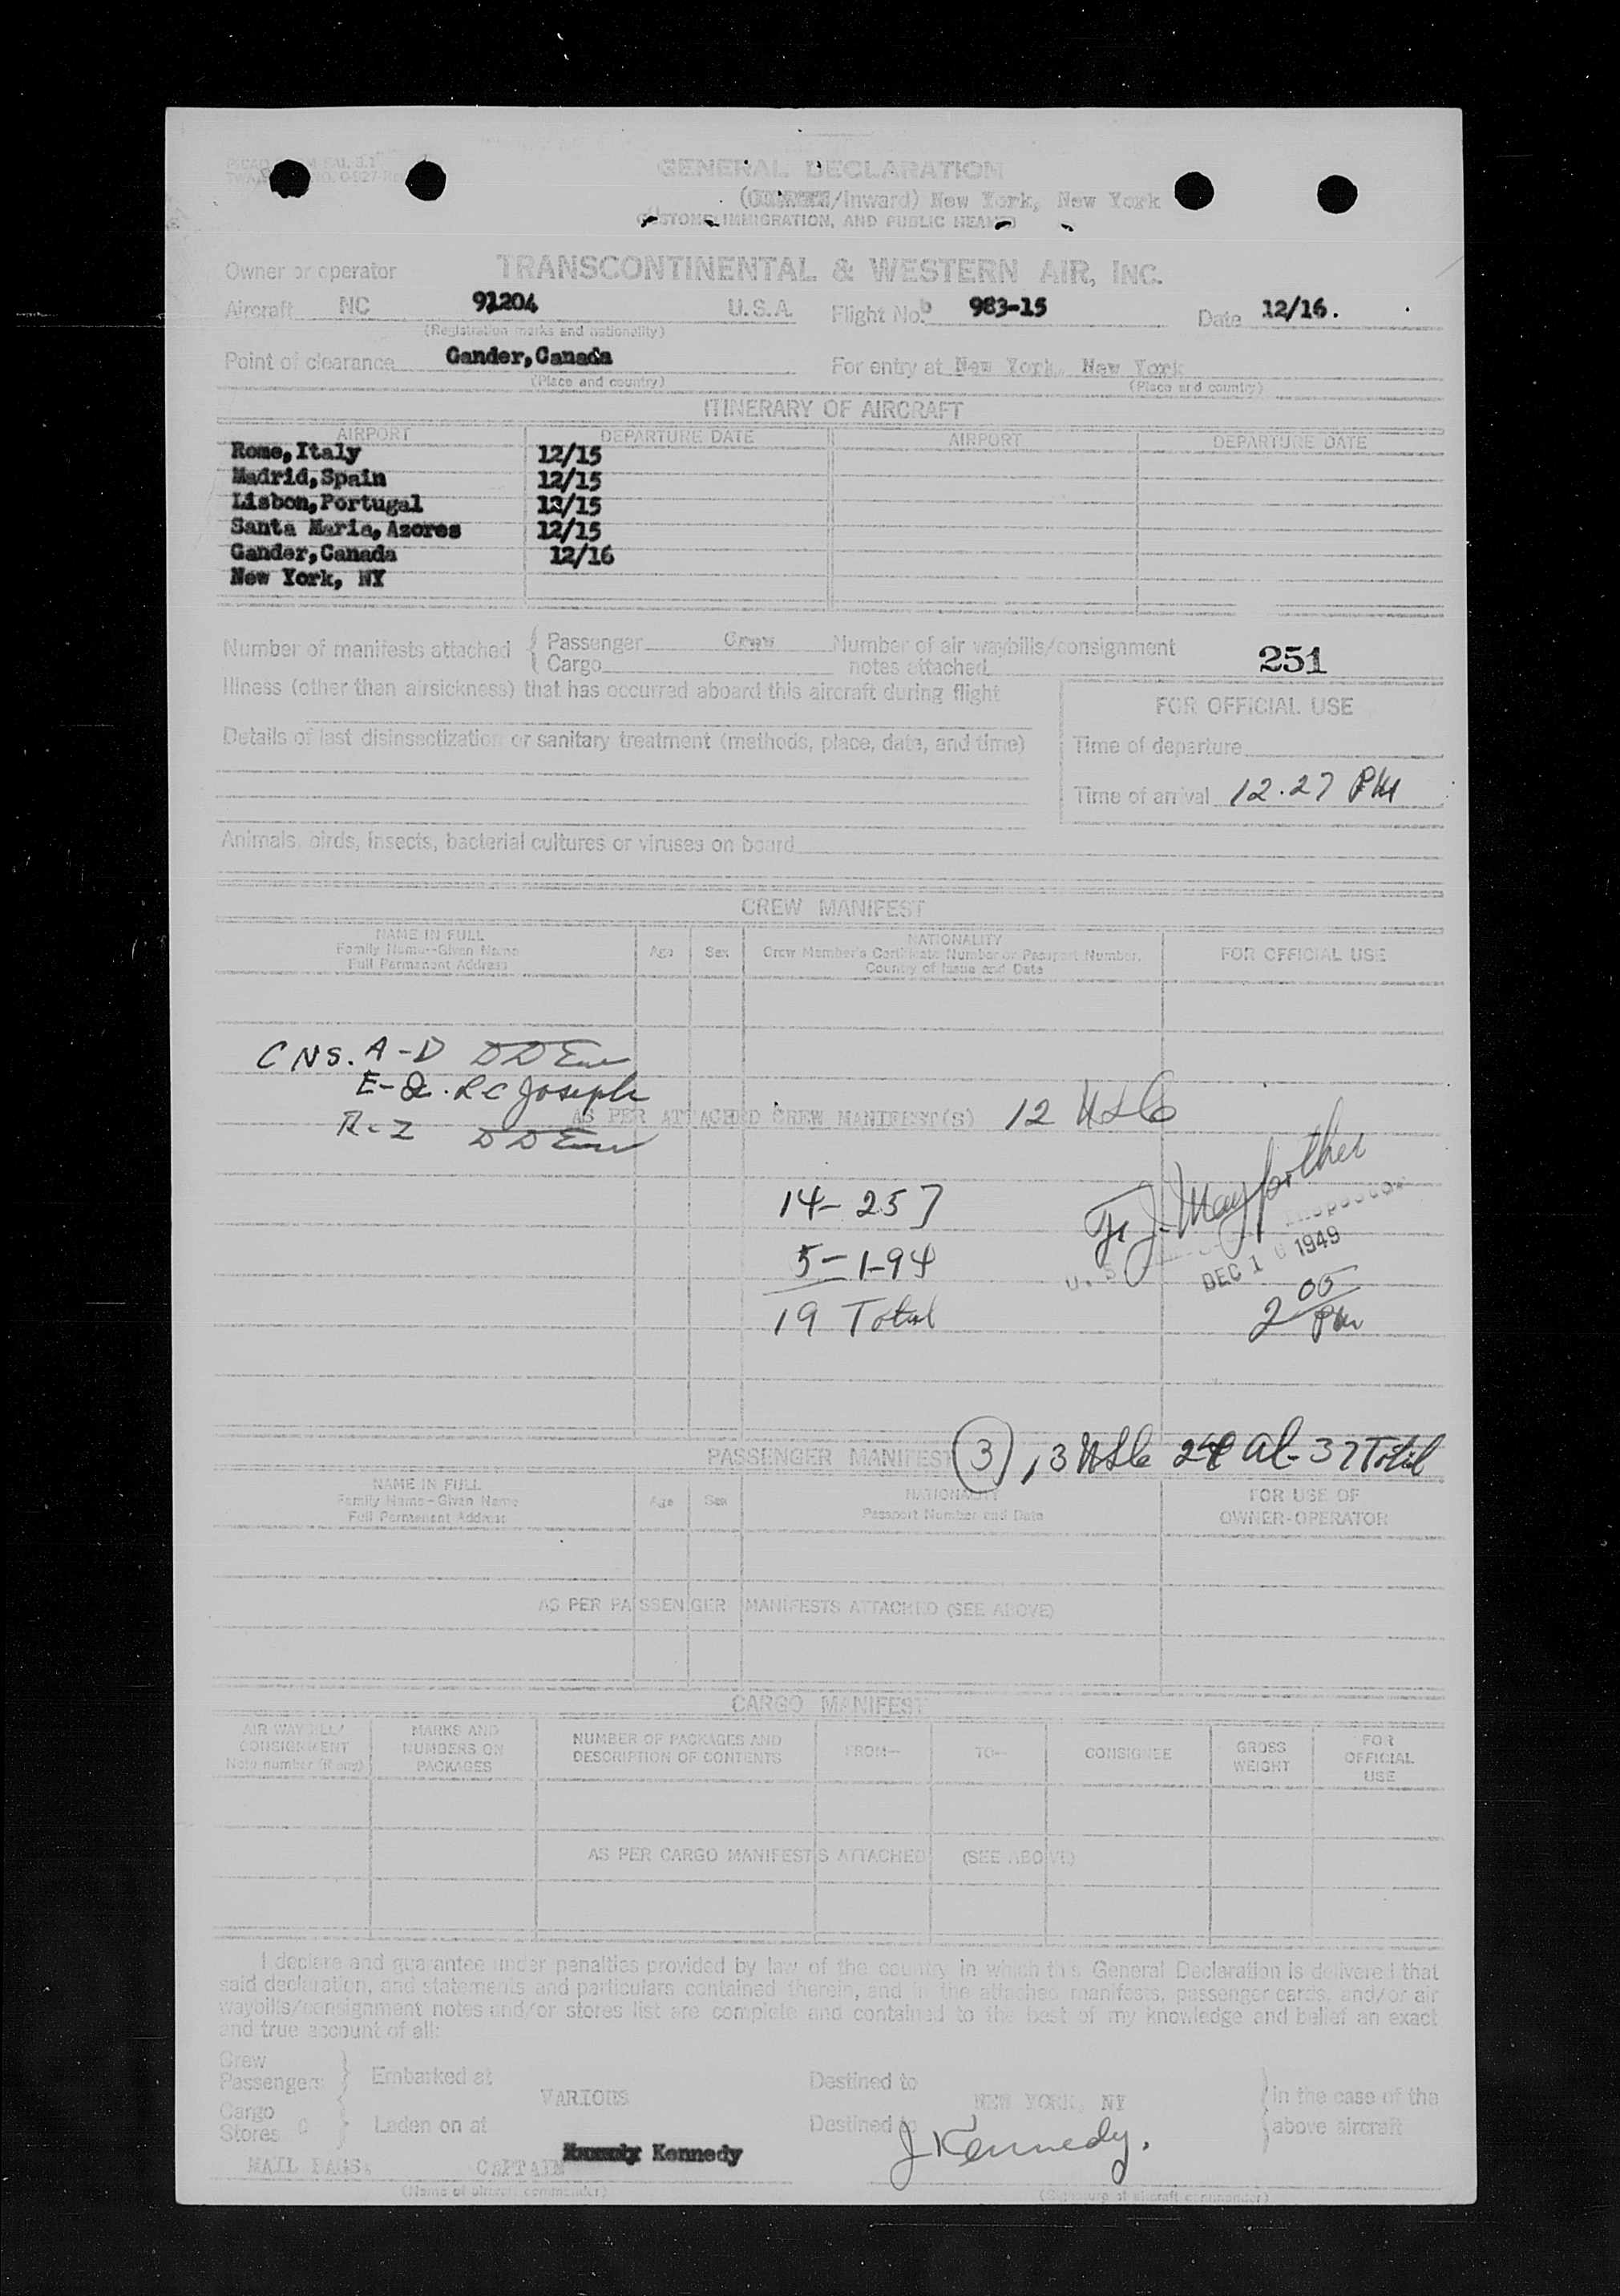 GENERAL DECLARATION
/Inward) New York, New York
CUSTOMS, IMMIGRATION, AND PUBLIC HEALTH
Owner or operator TRANSCONTINENTAL & WESTERN AIR, INC.
Aircraft NC 91204 U.S.A. Flight No. 983-15 Date 12/16.
(Registration marks and nationality)
Point of clearance Gander, Canada For entry at New York, New York
(Place and country) (Place and country)
ITINERARY OF AIRCRAFT
AIRPORT DEPARTURE DATE AIRPORT DEPARTURE DATE
Rome, Italy 12/15
Madrid, Spain 12/15
Lisbon, Portugal 12/15
Santa Maria, Azores 12/15
Gander, Canada 12/16
New York, NY
Number of manifests attached { Passenger Crew Number of air waybills/consignment
Cargo notes attached 251
Illness (other than airsickness) that has occurred aboard this aircraft during flight
FOR OFFICIAL USE
Details of last disinsectization or sanitary treatment (methods, place, date, and time)
Time of departure
Time of arrival 12.27 PM
Animals, birds, insects, bacterial cultures or viruses on board
CREW MANIFEST
NAME IN FULL
Family Name--Given Name
Full Permanent Address
Age Sex
NATIONALITY
Crew Member's Certificate Number or Passport Number,
Country of Issue and Date
FOR OFFICIAL USE
CNS. A-D
E-Q. RC Joseph
AS PER ATTACHED CREW MANIFEST(S) 12
R-Z
14- 257
5- 1-94
19 Total
Inspector
U. S.
DEC 16 1949
2 00 PM
PASSENGER MANIFEST (3) 13 24 Al- 37 Total
NAME IN FULL
Family Name--Given Name
Full Permanent Address
Age Sex
NATIONALITY
Passport Number and Date
FOR USE OF
OWNER-OPERATOR
AS PER PASSENGER MANIFESTS ATTACHED (SEE ABOVE)
CARGO MANIFEST
AIR WAYBILL/
CONSIGNMENT
Note number (if any)
MARKS AND
NUMBERS ON
PACKAGES
NUMBER OF PACKAGES AND
DESCRIPTION OF CONTENTS
FROM--
TO--
CONSIGNEE
GROSS
WEIGHT
FOR
OFFICIAL
USE
AS PER CARGO MANIFESTS ATTACHED (SEE ABOVE)
I declare and guarantee under penalties provided by law of the country in which this General Declaration is delivered that
said declaration, and statements and particulars contained therein, and in the attached manifests, passenger cards, and/or air
waybills/consignment notes and/or stores list are complete and contained to the best of my knowledge and belief an exact
and true account of all:
Crew
Passengers } Embarked at VARIOUS Destined to NEW YORK, NY } in the case of the
Cargo
Stores } Laden on at Destined to } above aircraft
MAIL BAGS. CAPTAIN Kennedy J Kennedy.
(Name of aircraft commander) (Signature of aircraft commander)